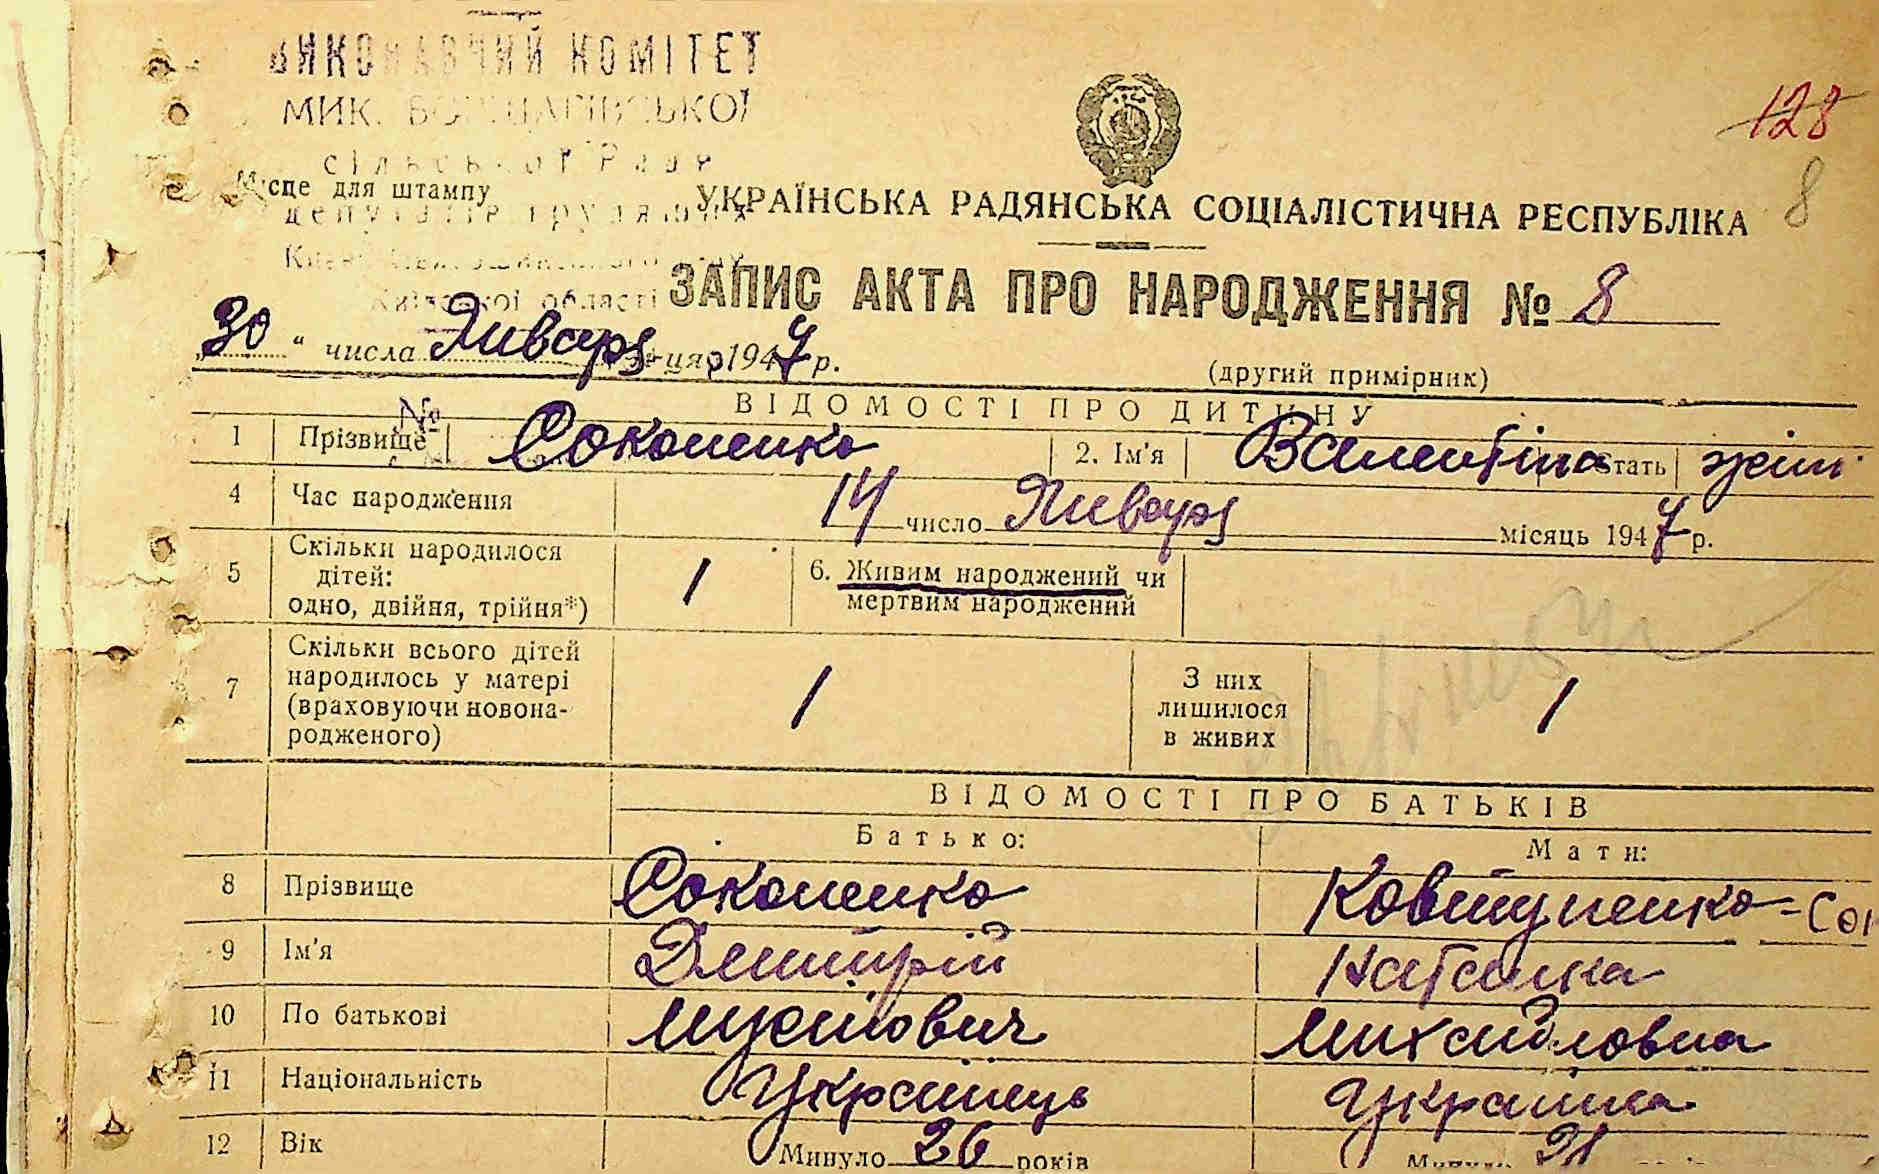 ВИКОНАВЧИЙ КОМІТЕТ
МИК.
сільської Ради
Місце для штампу
депутатів трудящих
Київської області
128
8
УКРАЇНСЬКА РАДЯНСЬКА СОЦІАЛІСТИЧНА РЕСПУБЛІКА
ЗАПИС АКТА ПРО НАРОДЖЕННЯ № 8
„30“ числа Январь місяця 1947 р.
(другий примірник)
№
ВІДОМОСТІ ПРО ДИТИНУ
1 Прізвище Соколенко 2. Ім'я Валентіна стать жін
4 Час народження 14 число Январь місяць 1947 р.
5 Скільки народилося дітей: одно, двійня, трійня*) 1 6. Живим народжений чи мертвим народжений
7 Скільки всього дітей народилось у матері (враховуючи новонародженого) 1 З них лишилося в живих 1
ВІДОМОСТІ ПРО БАТЬКІВ
Батько: Мати:
8 Прізвище Соколенко Ковтуненко-Сок
9 Ім'я Дмитрій Наталка
10 По батькові Михайловна
11 Національність Українець Українка
12 Вік Минуло 26 років Минуло 21 років